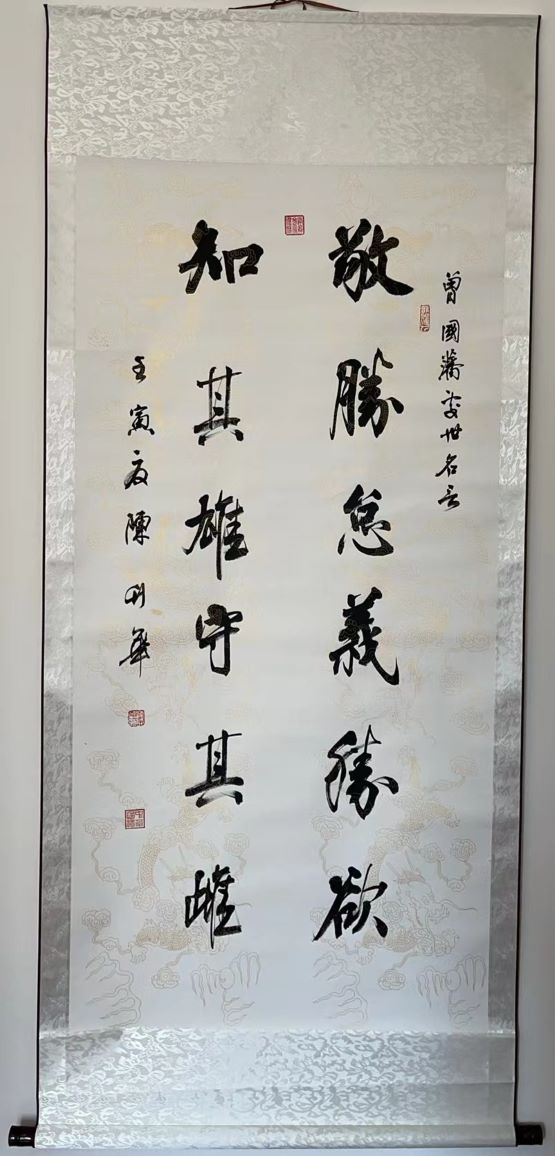 曾國藩處世名言
敬勝怠義勝欲
知其雄守其雌
壬寅夏陳 華